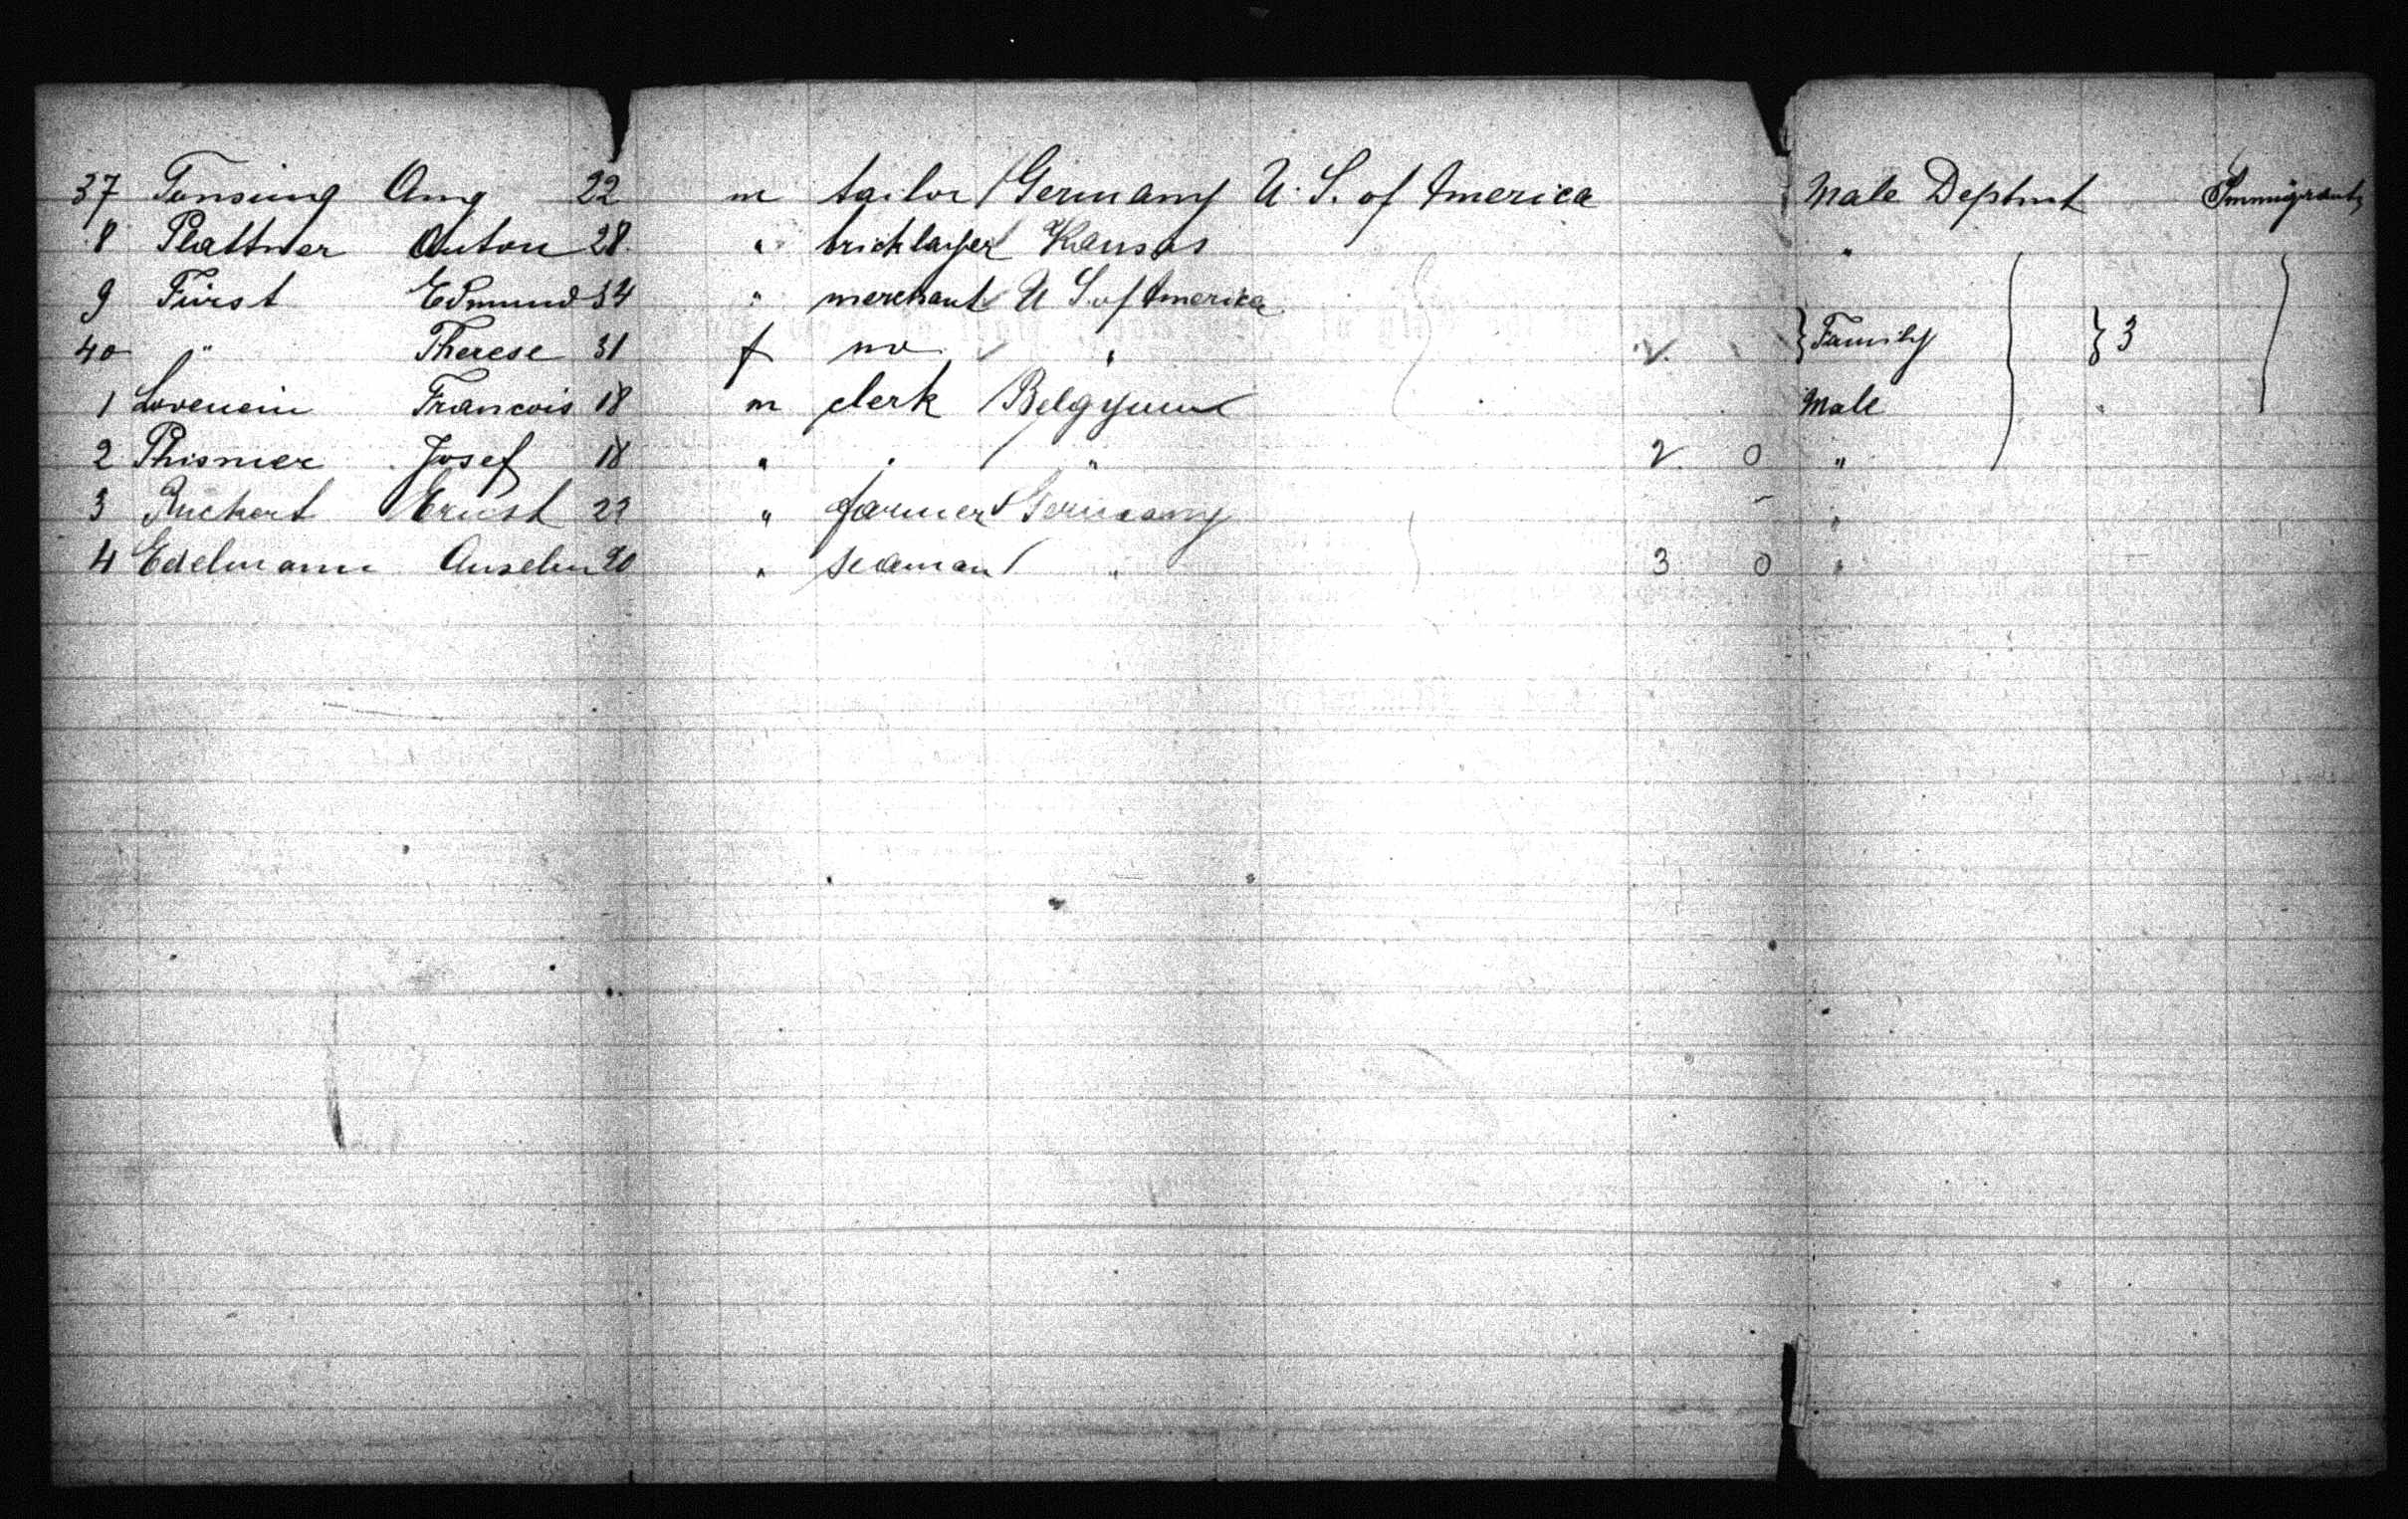 37 Tonsing Aug 22 m tailor Germany U. S. of America Male Deptmt Immigrants
8 Plattner Anton 28 " bricklayer Kansas "
9 Fürst Edmund 34 " merchant U S. of America
40 " Therese 31 f no " 2 } Family } 3
1 Francois 18 m clerk Belgyum Male "
2 Josef 18 " " " 2 0 "
3 Ruckert Ernst 22 " farmer Germany "
4 Edelmann Anselm 20 " seaman " 3 0 "